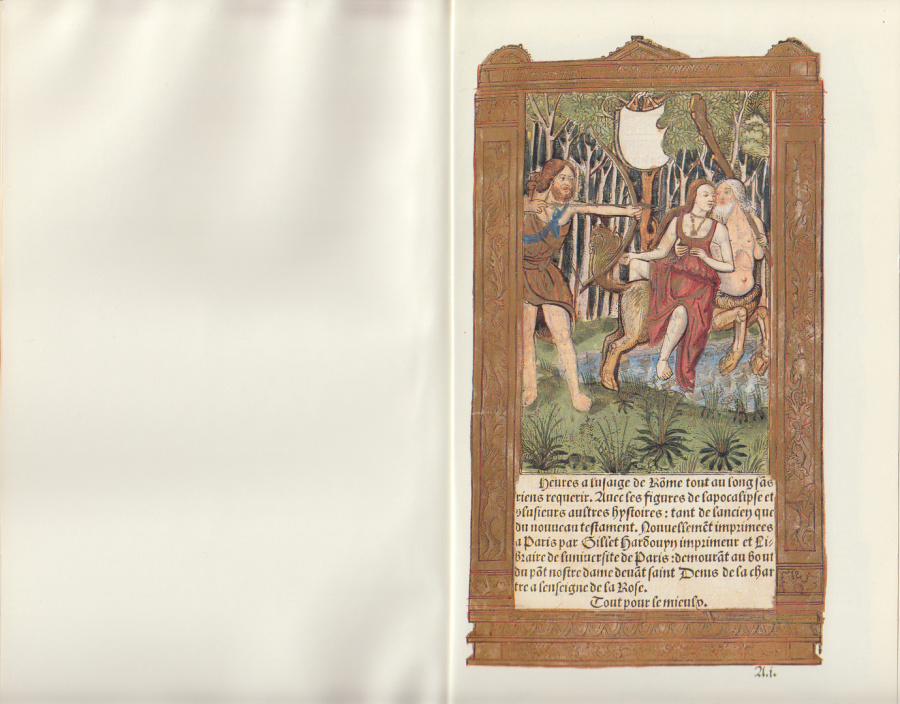 Heures a lusaige de Rõme tout au long sãs
riens requerir. Auec les figures de lapocalipse et
plusieurs aultres hystoires: tant de lancien que
du nouueau testament. Nouuellemẽt imprimees
a Paris par Gillet Hardouyn imprimeur et Li-
braire de luniuersite de Paris: demourãt au bout
du põt nostre dame deuãt saint Denis de la char
tre a lenseigne de la Rose.
Tout pour le mieulx.
A.i.